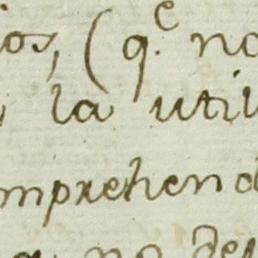 ios, (q.^e no
la util
omprehend
no de